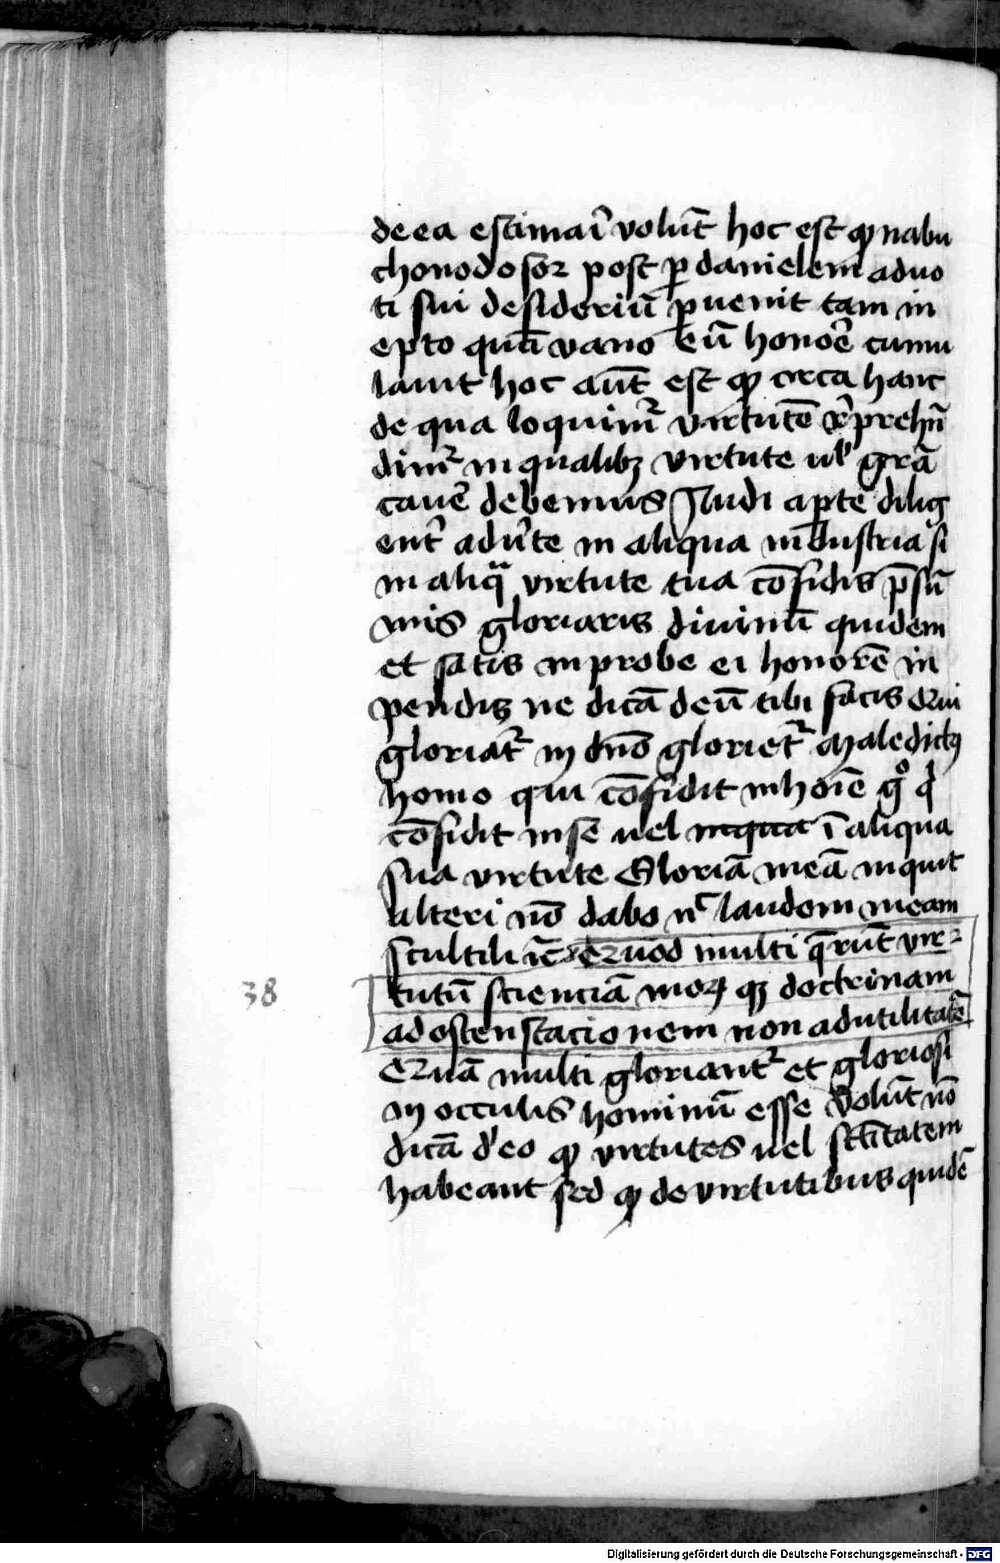 de ea estimari volūt hoc est ꝙ nabu
chonodosor post ꝑ danielem ad uo
ti sui desideriū ꝑuenit tam in
epto quā vano eū honore cumu
lauit hoc aūt est ꝙ circa hanc
de qua loquim̄ virtutē rep̄rehn̄
dim̄ in qualibꝫ virtute ul' grā
cauē debemus Audi aꝑte dilig
ent̄ adūte in aliqua industria si
in aliqͣ virtute tua cōfidis p̄sū
mis gloriaris diuinū quidem
et satis inprobe ei honorē in
pendis ne dicā deū tibi facis Qui
gloriat̄ in dn̄o gloriet̄ Maledictꝰ
homo qui cōfidit in hoīe gͦ q̇
cōfidit in se uel inqua ī aliqua
sua virtute Gloriā meā inquit
alteri nō dabo nͨ laudem meam
scultili ic̄ Quod multi q̄rūt vir-
38
tutū scienciā moꝝ qꝫ doctrinam
ad ostenstacionem non ad utilitatē
Quā multi gloriant̄ et gloriosi
in occulis hominū esse volūt nō
dicā d'eo ꝙ virtutes uel sc̄titatem
habeant sed ꝙ de virtutibus quidē
Digitalisierung gefördert durch die Deutsche Forschungsgemeinschaft - DFG